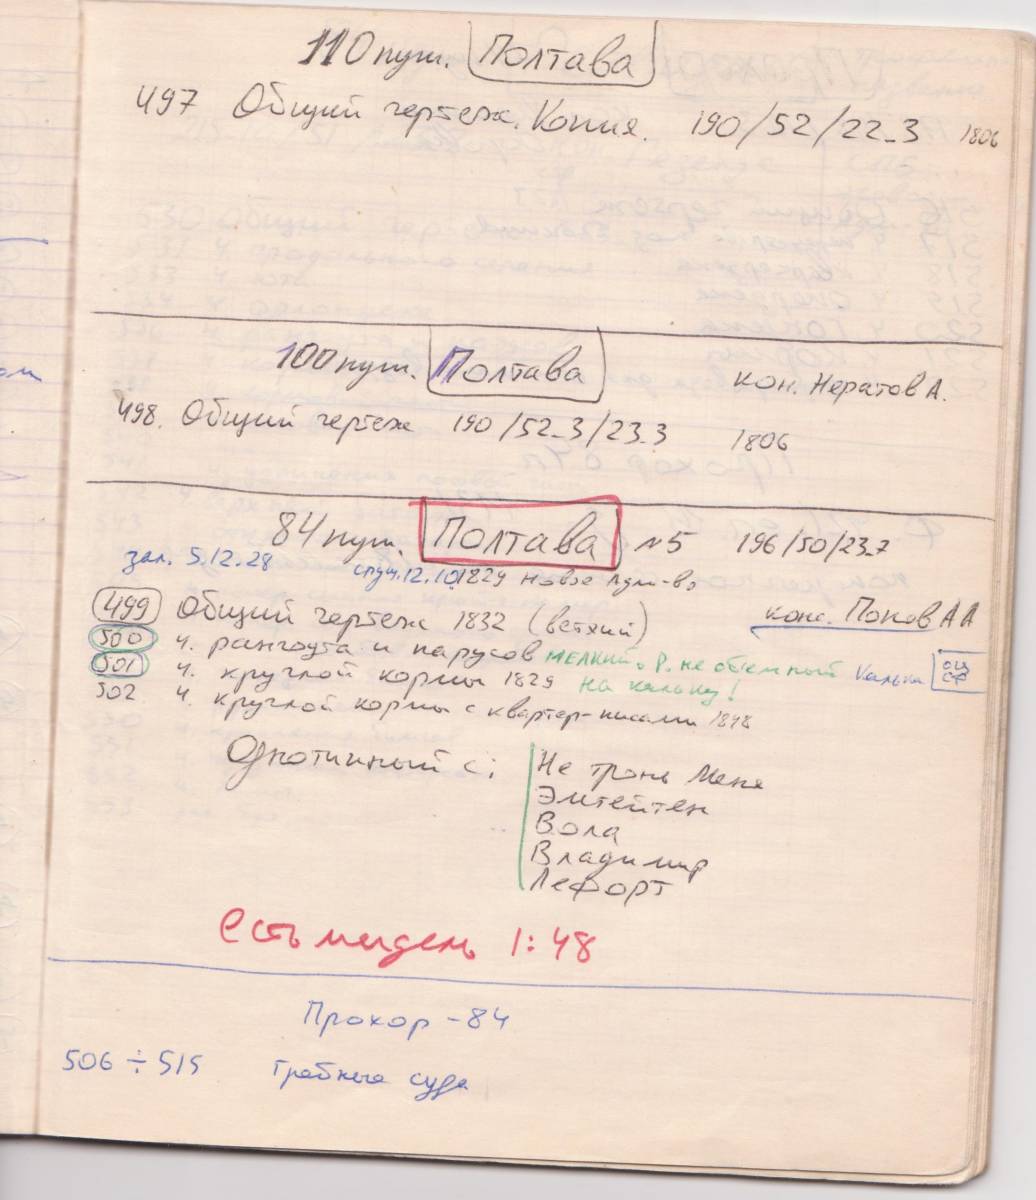 110 пуш. Полтава
497 Общий чертеж. Копия. 190/52/22-3 1806
100 пуш. Полтава кон. Нератов А.
498. Общий чертеж 190/52-3/23.3 1806
84 пуш. Полтава №5 196/50/23.7
зал. 5.12.28 спущ. 12.10.1829 Новое Адм-во
499 Общий чертеж 1832 (ветхий) конс. Попов А А
500 ч. рангоута и парусов мелкий. Р. не объемный Калька
501 ч. круглой кормы 1829 на кальку!
502 ч. круглой кормы с квартер-писами 1828
Однотипный с:
Не тронь Меня
Эмгейтен
Вола
Владимир
Лефорт
есть мидель 1:48
Прохор - 84
506 ÷ 515 Гребные суда